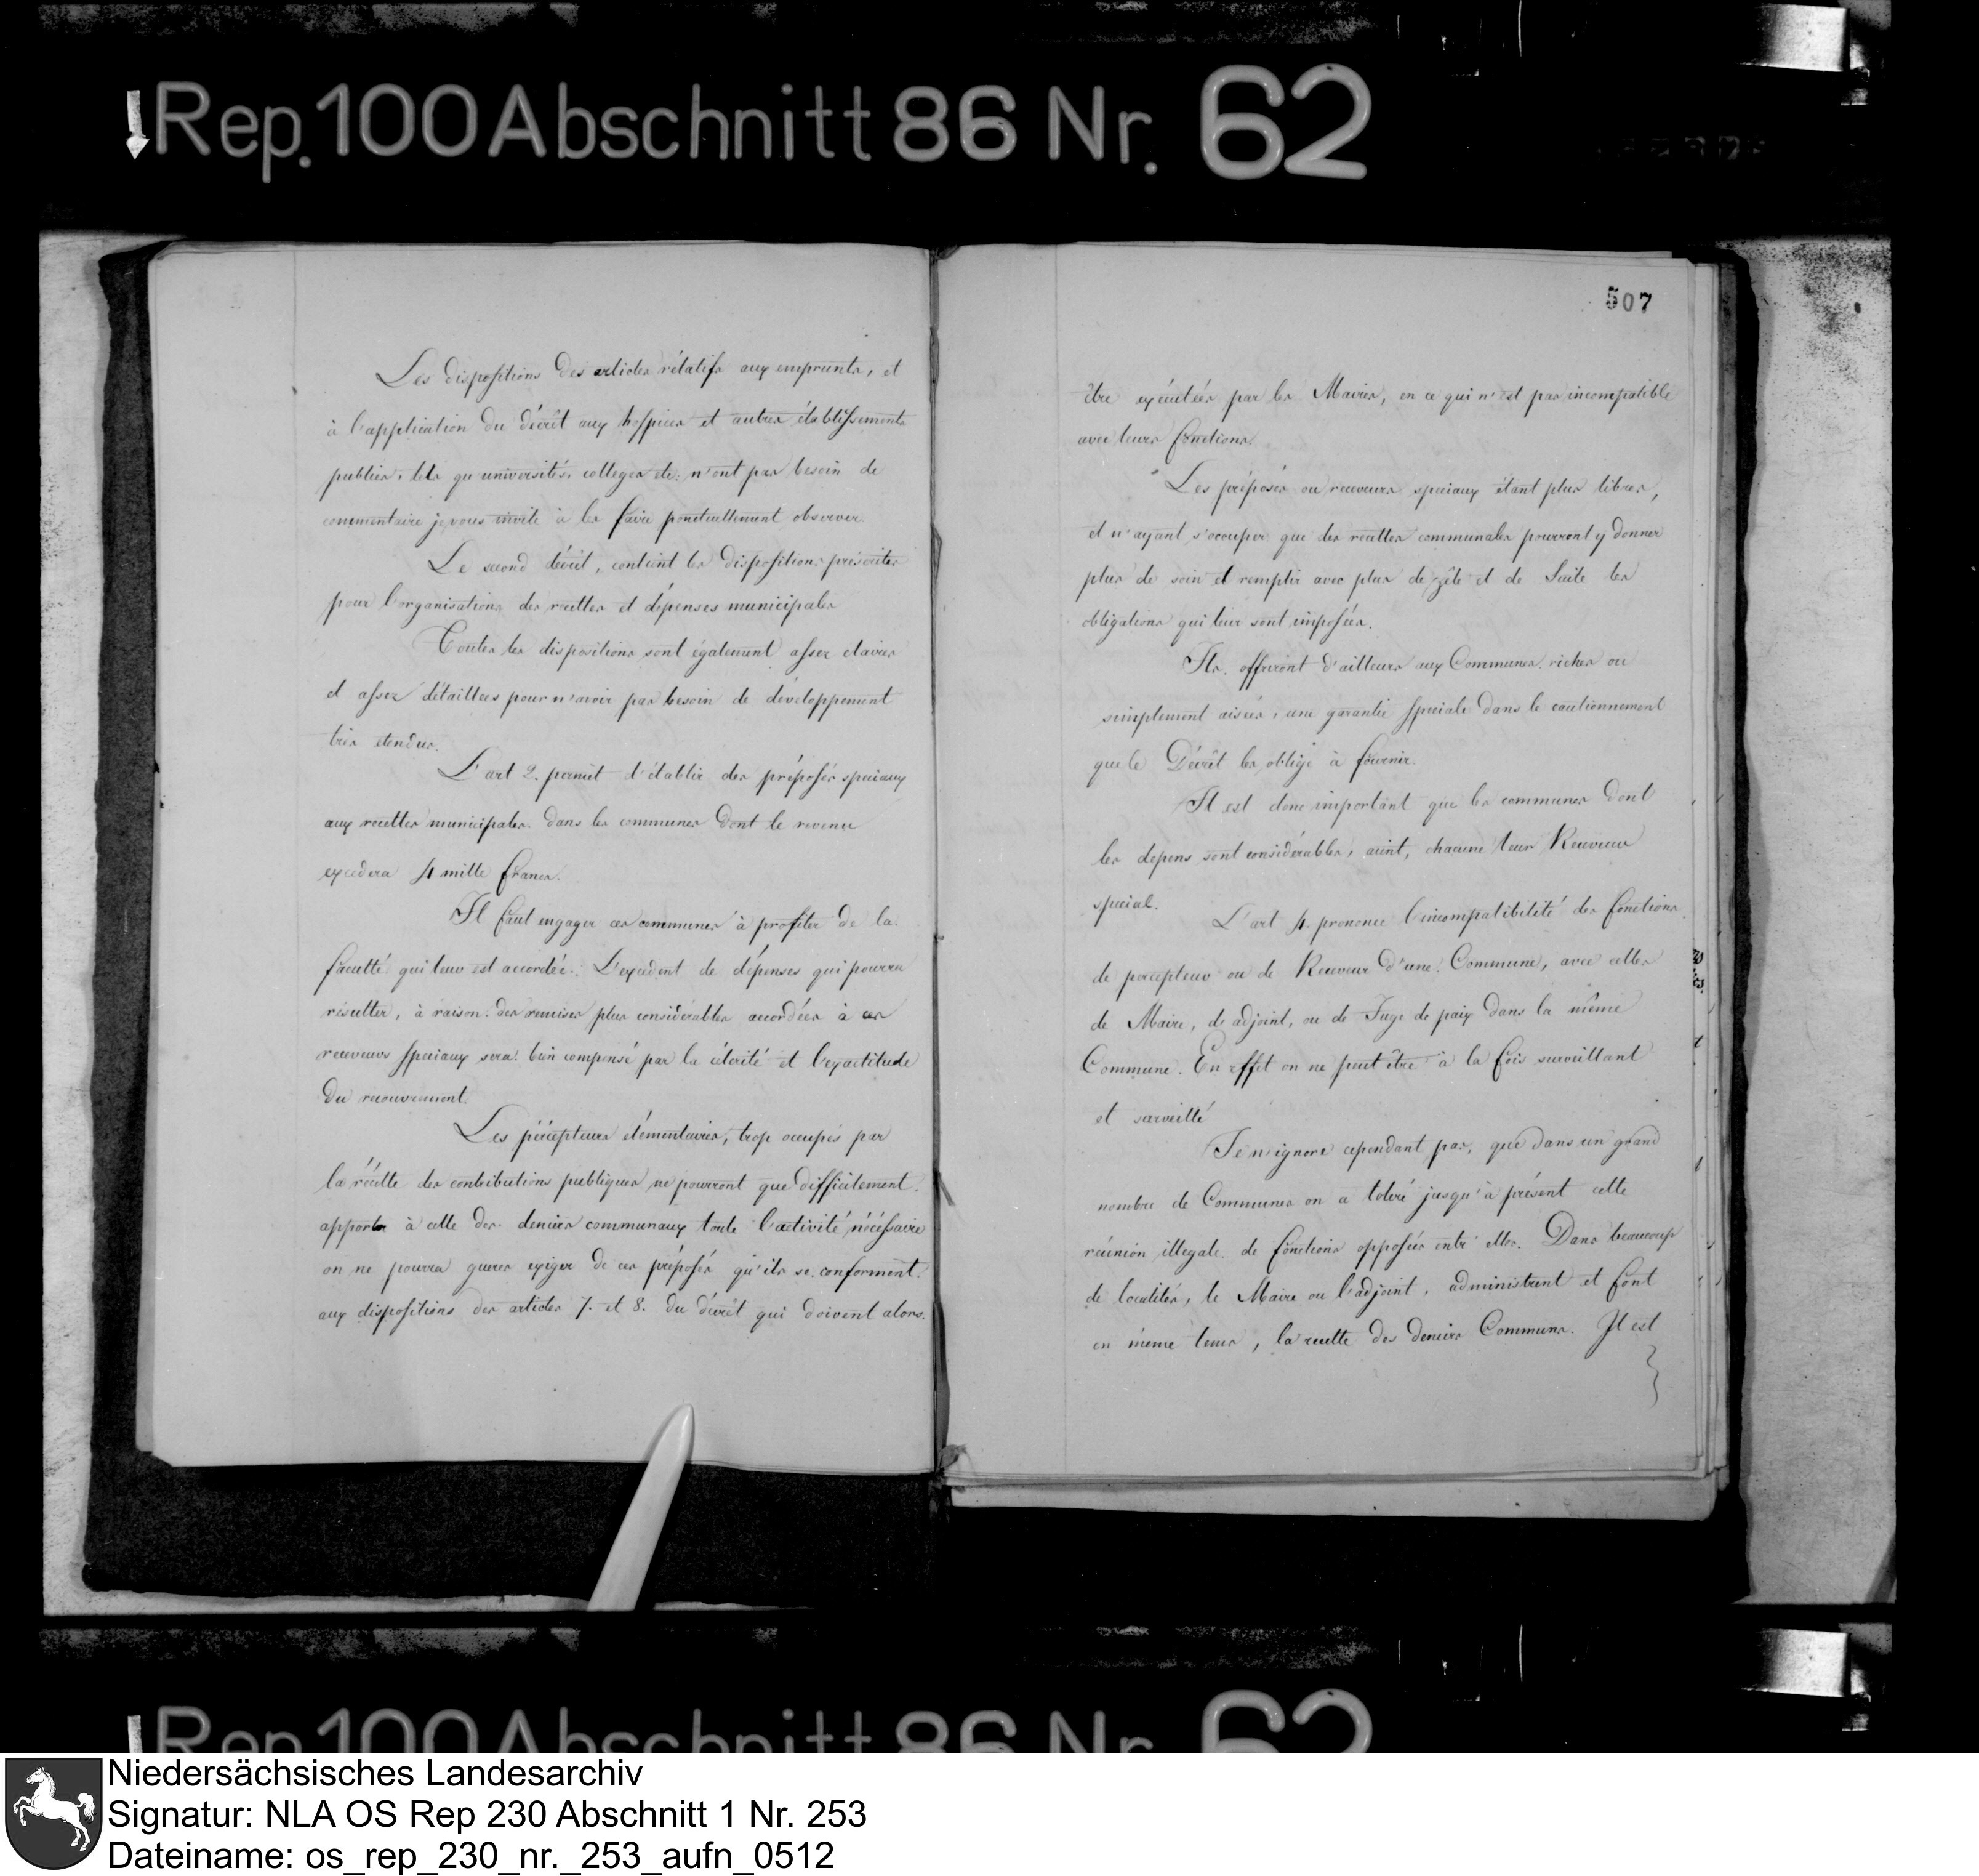 Rep. 100 Abschnitt 86 Nr. 62
Les dispositions des articles rélatifs aux emprunts, et
à l'application du décrêt aux hospices et autres établissements
publics, tels qu'universités, colleges etc: n'ont pas besoin de
commentaire je vous invite à les faire ponctuellement observer.
Le second décrêt, contient les dispositions préscrites
pour l'organisation, des recettes et dépenses municipales
Toutes les dispositions sont également assez claires
et assez détaillees pour n'avoir pas besoin de développement
très etendus.
L'art 2. permêt d'établir des préposés speciaux
aux recettes municipales. dans les communes dont le revenu
excedera 4 mille francs.
Il faut engager ces communes à profiter de la
faculté qui leur est accordée. L'excedent de dépenses qui pourra
résulter, à raison des remises plus considérables accordées à ces
receveurs speciaux sera bien compensé par la célérité et l'exactitude
du recouvrement.
Les pércepteurs élémentaires, trop occupés par
la récette des contributions publiques ne pourront que difficilement
apporter à celle des deniers communaux toute l'activité nécéssaire
on ne pourra gueres exiger de ces préposés qu'ils se conforment
aux dispositions des articles 7. et 8. du décrêt qui doivent alors
507
être exécutées par les Maires, en ce qui n'est pas incompatible
avec leurs fonctions.
Les préposés ou receveurs speciaux étant plus libres,
et n'ayant s'occuper que des recettes communales pourront y donner
plus de soin et remplir avec plus de zêle et de Suite les
obligations qui leur sont imposées.
Ils offriront d'ailleurs aux Communes riches ou
simplement aisées, une garantie speciale dans le cautionnement
que le Décrêt les oblige à fournir.
Il est donc important que les communes dont
les depens sont considérables, aient, chacune leur Receveur
special.
L'art 4. prononce l'incompatibilité des fonctions
de percepteur ou de Receveur d'une Commune, avec celles
de Maire, de adjoint, ou de Juge de paix dans la même
Commune. En effet on ne peut être à la fois surveillant
et surveillé
Je n'ignore cependant pas, que dans un grand
nombre de Communes on a toleré jusqu'à présent cette
réunion illegale de fonctions opposées entr' elles. Dans beaucoup
de localités, le Maire ou l'adjoint, administrent et font
en même tems, la recette des deniers Communs. Il est
Rep. 100 Abschnitt 86 Nr. 62
Niedersächsisches Landesarchiv
Signatur: NLA OS Rep 230 Abschnitt 1 Nr. 253
Dateiname: os_rep_230_nr._253_aufn_0512